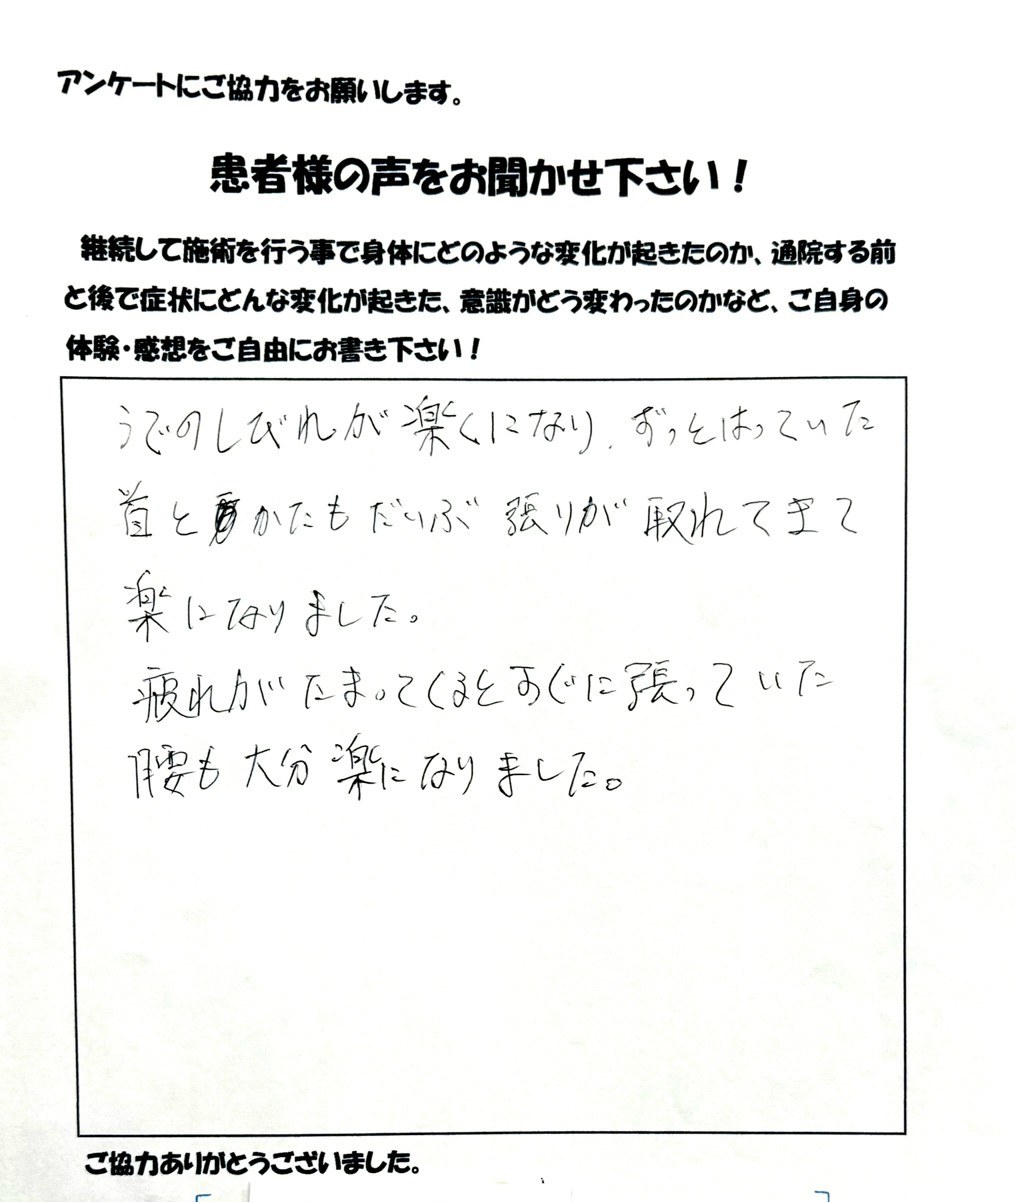 アンケートにご協力をお願いします。
患者様の声をお聞かせ下さい！
継続して施術を行う事で身体にどのような変化が起きたのか、通院する前
と後で症状にどんな変化が起きた、意識がどう変わったのかなど、ご自身の
体験・感想をご自由にお書き下さい！
うでのしびれが楽くになり、ずっとはっていた
首とかたもだいぶ張りが取れてきて
楽になりました。
疲れがたまってくるとすぐに張っていた
腰も大分楽になりました。
ご協力ありがとうございました。